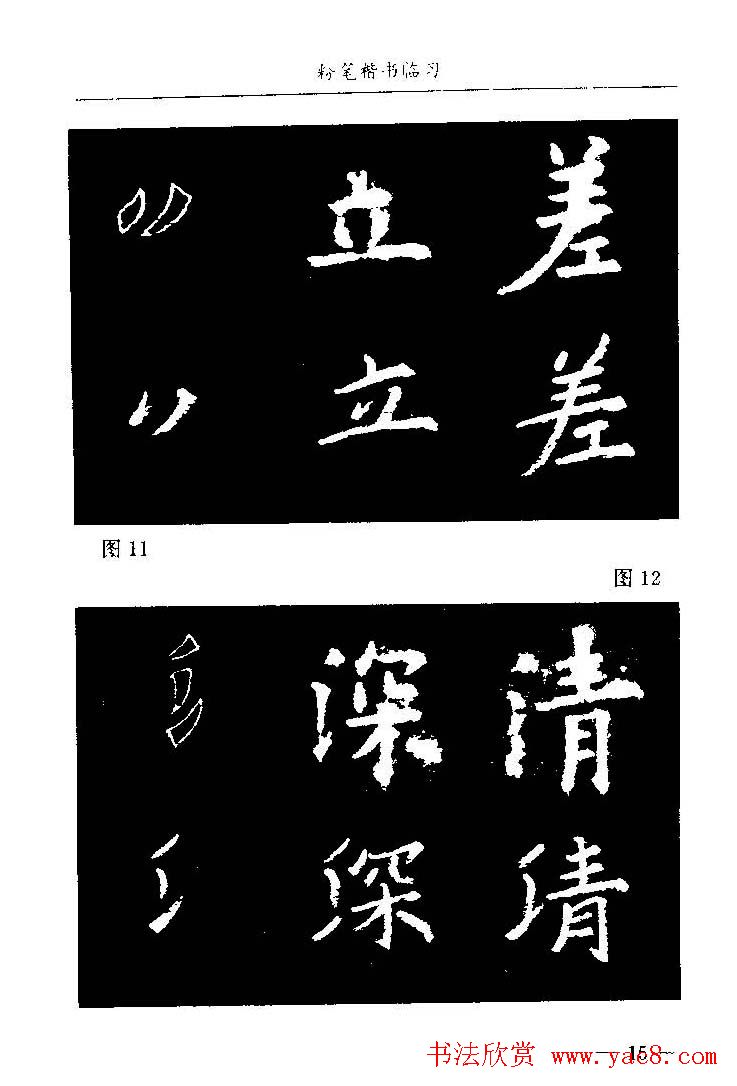 粉笔楷书临习
立 差
立 差
图11
图12
深 清
深 清
15
书法欣赏 www.yac8.com